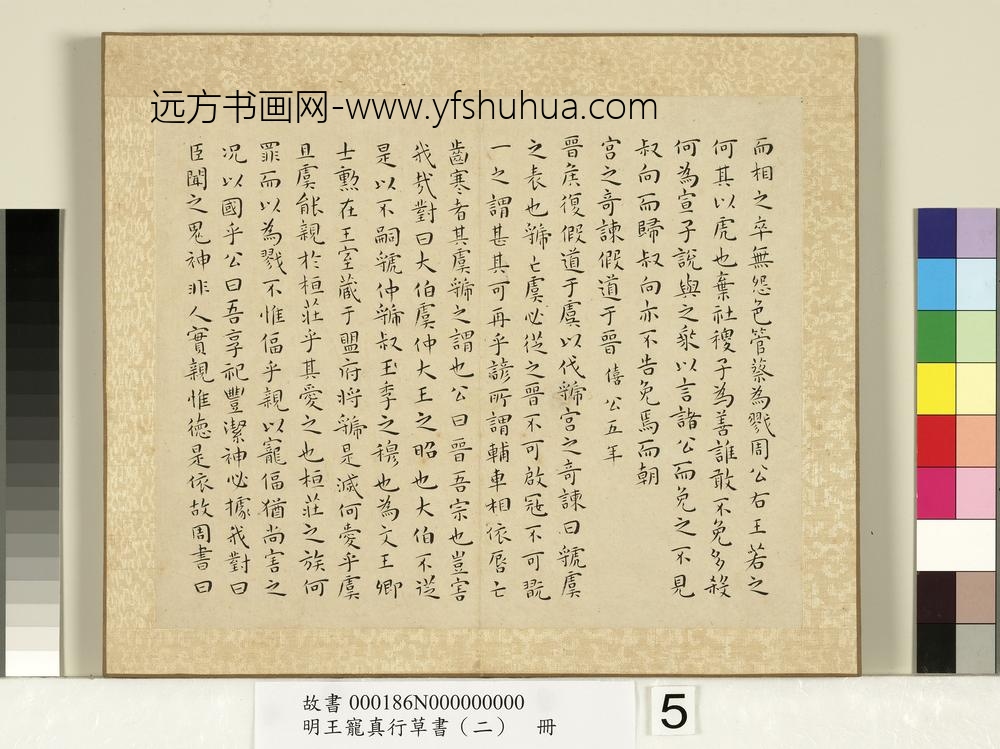 远方书画网-www.yfshuhua.com
而相之卒無怨色管蔡為戮周公右王若之
何其以虎也棄社稷子為善誰敢不免多殺
何為宣子說與之乘以言諸公而免之不見
叔向而歸叔向亦不告免焉而朝
宮之奇諫假道于晉 僖公五年
晉侯復假道于虞以伐虢宮之奇諫曰虢虞
之表也虢亡虞必從之晉不可啟寇不可翫
一之謂甚其可再乎諺所謂輔車相依唇亡
齒寒者其虞虢之謂也公曰晉吾宗也豈害
我哉對曰大伯虞仲大王之昭也大伯不從
是以不嗣虢仲虢叔王季之穆也為文王卿
士勲在王室藏于盟府將虢是滅何愛乎虞
且虞能親於桓莊乎其愛之也桓莊之族何
罪而以為戮不惟偪乎親以寵偪猶尚害之
况以國乎公曰吾享祀豐潔神必據我對曰
臣聞之鬼神非人實親惟德是依故周書曰
故書 000186N000000000
明王寵真行草書（二） 冊
5